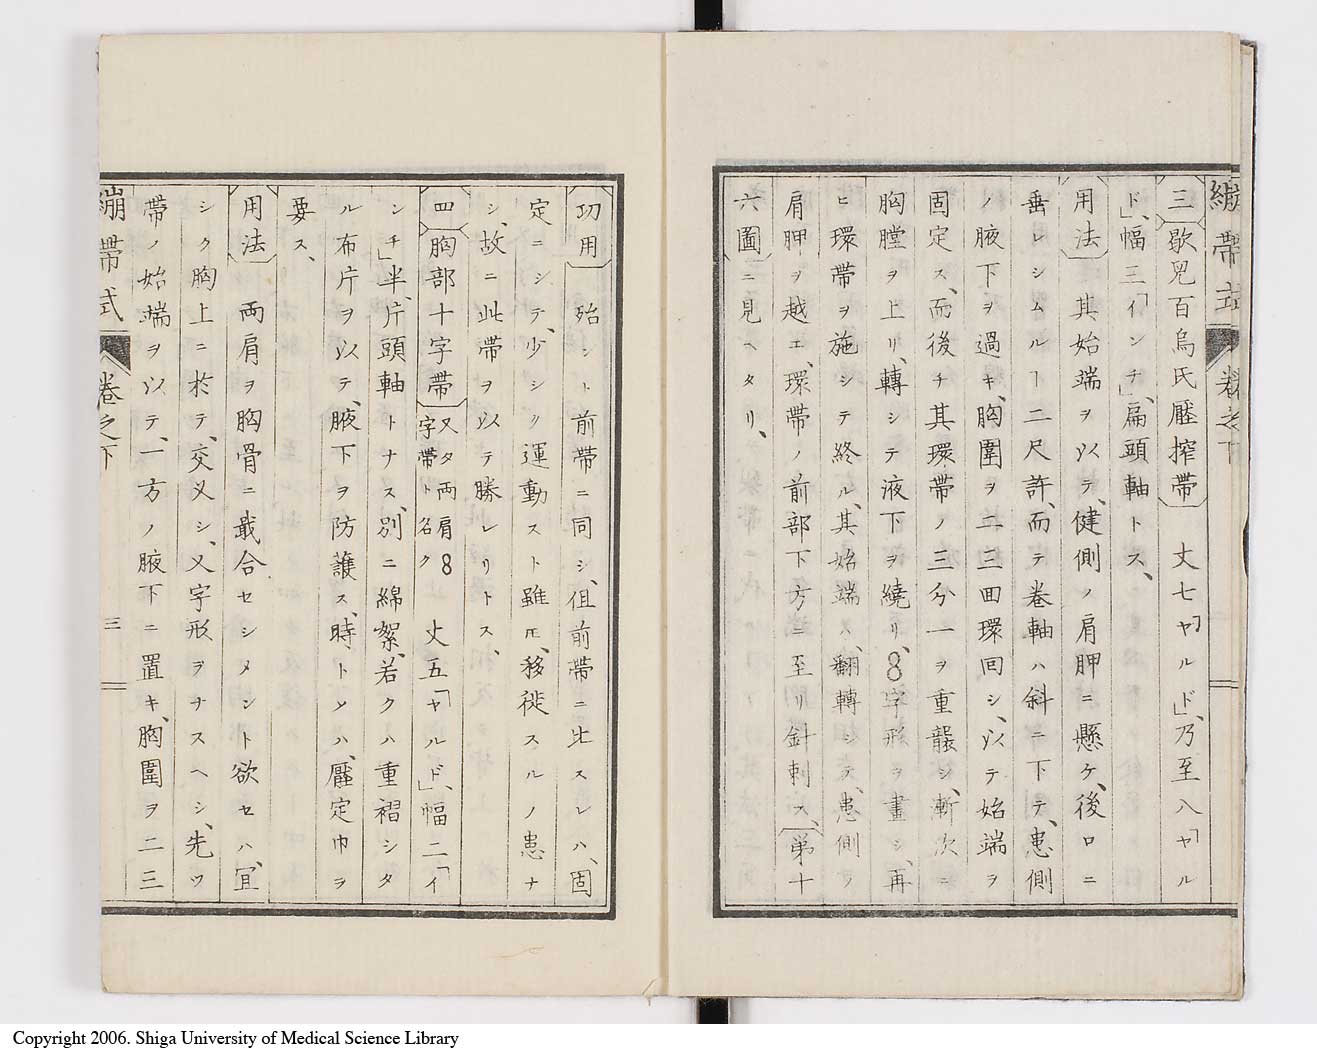 繃帶式 卷之下
三 歇兒百烏氏壓搾帶 丈七「ヤルド」、乃至八「ヤル
ド」、幅三「インチ」、扁頭軸トス、
用法 其始端ヲ以テ、健側ノ肩胛ニ懸ケ、後ロニ
垂レシムルヿ二尺許、而テ卷軸ハ斜ニ下テ、患側
ノ腋下ヲ過キ、胸圍ヲ二三回環回シ、以テ始端ヲ
固定ス、而後チ其環帶ノ三分一ヲ重襲シ、漸次ニ
胸膛ヲ上リ、轉シテ液下ヲ繞リ、8字形ヲ畫シ、再
ヒ環帶ヲ施シテ終ル、其始端ハ、翻轉シテ、患側ノ
肩胛ヲ越エ、環帶ノ前部下方ニ至リ針刺ス、第十
六圖ニ見ヘタリ、
功用 殆ント前帶ニ同シ、但前帶ニ比スレハ、固
定ニシテ、少シク運動スト雖モ、移徙スルノ患ナ
シ、故ニ此帶ヲ以テ勝レリトス、
四 胸部十字帶 又タ兩肩8字帶ト名ク 丈五「ヤルド」、幅二「イ
ンチ」半、片頭軸トナス、別ニ綿絮、若クハ重褶シタ
ル布片ヲ以テ、腋下ヲ防護ス、時トメハ、壓定巾ヲ
要ス、
用法 兩肩ヲ胸骨ニ最合セシメント欲セハ、宜
シク胸上ニ於テ、交叉シ、乂字形ヲナスヘシ、先ツ
帶ノ始端ヲ以テ、一方ノ腋下ニ置キ、胸圍ヲ二三
繃帶式 卷之下 三
Copyright 2006. Shiga University of Medical Science Library